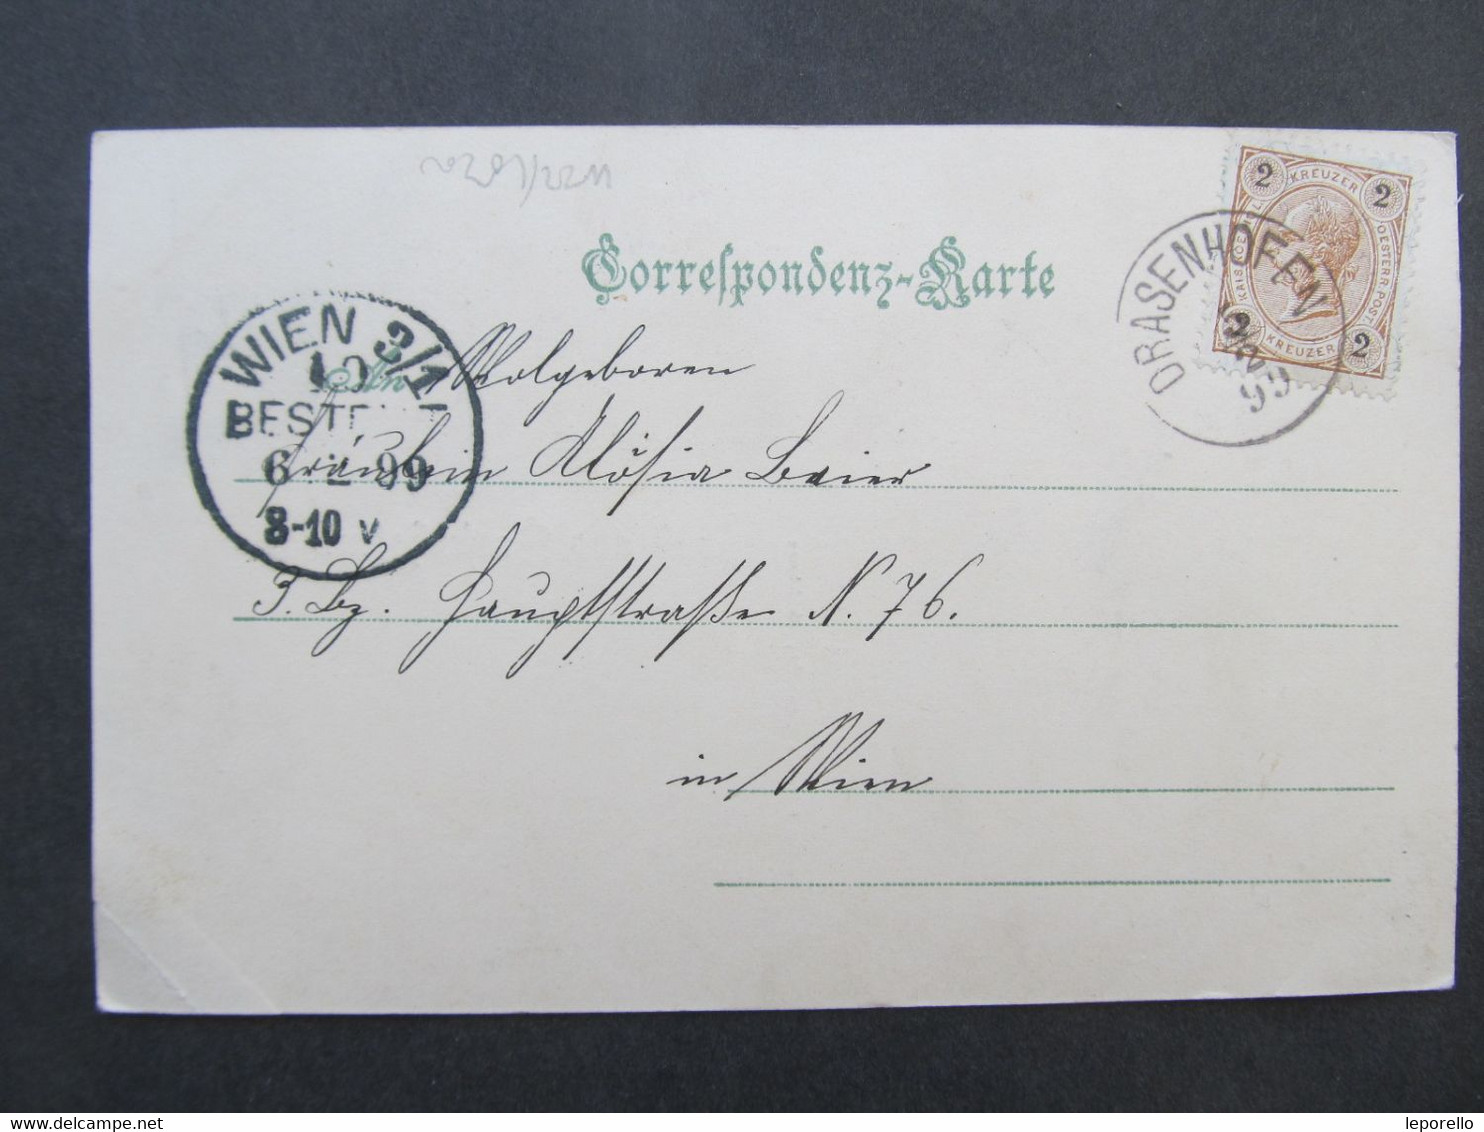 Correspondenz-Karte
2 KREUZER 2
KAIS. KOENIGL. OESTERR. POST
2 KREUZER 2
DRASENHOFEN
99
WIEN 3/1
BESTELLT
6 2 99
8-10 V
An Wolgeboren
Fräulein Aloisia Baier
3. Bz. Hauptstraße N. 76.
in Wien
leporello